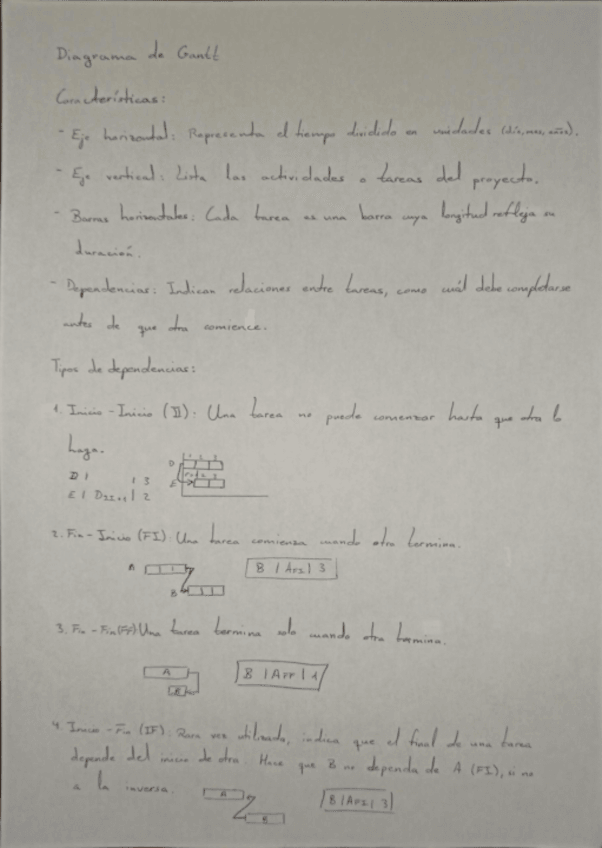 Diagrama de Gantt
Características:
- Eje horizontal: Representa el tiempo dividido en unidades (día, mes, años).
- Eje vertical: Lista las actividades o tareas del proyecto.
- Barras horizontales: Cada tarea es una barra cuya longitud refleja su
duración.
- Dependencias: Indican relaciones entre tareas, como cuál debe completarse
antes de que otra comience.
Tipos de dependencias:
1. Inicio - Inicio (II): Una tarea no puede comenzar hasta que otra lo
haga.
1 2 3
D
D | | 3
E
E | DII+1 | 2
2. Fin - Inicio (FI): Una tarea comienza cuando otra termina.
A
B | AFI | 3
B
3. Fin - Fin (FF) Una tarea termina solo cuando otra termina.
A
B | AFF | 1
B
4. Inicio - Fin (IF): Rara vez utilizado, indica que el final de una tarea
depende del inicio de otra. Hace que B no dependa de A (FI), si no
a la inversa.
A
B
3